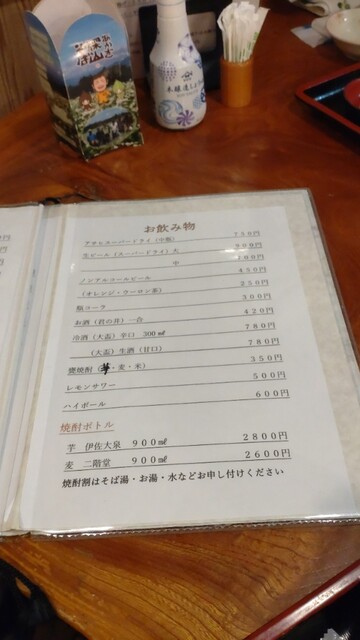 お飲み物
アサヒスーパードライ(中瓶) 750円
生ビール(スーパードライ)大 900円
中 700円
ノンアルコールビール 450円
(オレンジ・ウーロン茶) 250円
瓶コーラ 300円
お酒(君の井)一合 420円
冷酒(大盃)辛口 300㎖ 780円
(大盃)生酒(甘口) 780円
焼酎(・麦・米) 350円
レモンサワー 500円
ハイボール 600円
焼酎ボトル
芋 伊佐大泉 900㎖ 2800円
麦 二階堂 900㎖ 2600円
焼酎割はそば湯・お湯・水などお申し付けください